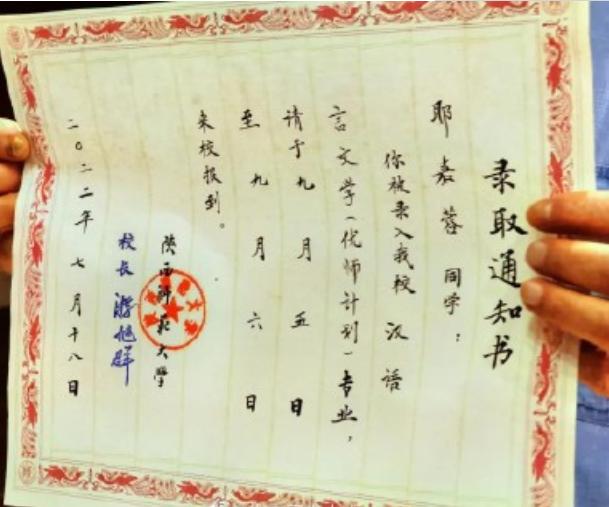 录取通知书
耶嘉蓉同学：
你被录入我校汉语
言文学（优师计划）专业，
请于九月五日
至九月六日
来校报到。
陕西师范大学
校长 游旭群
二〇二二年七月十八日